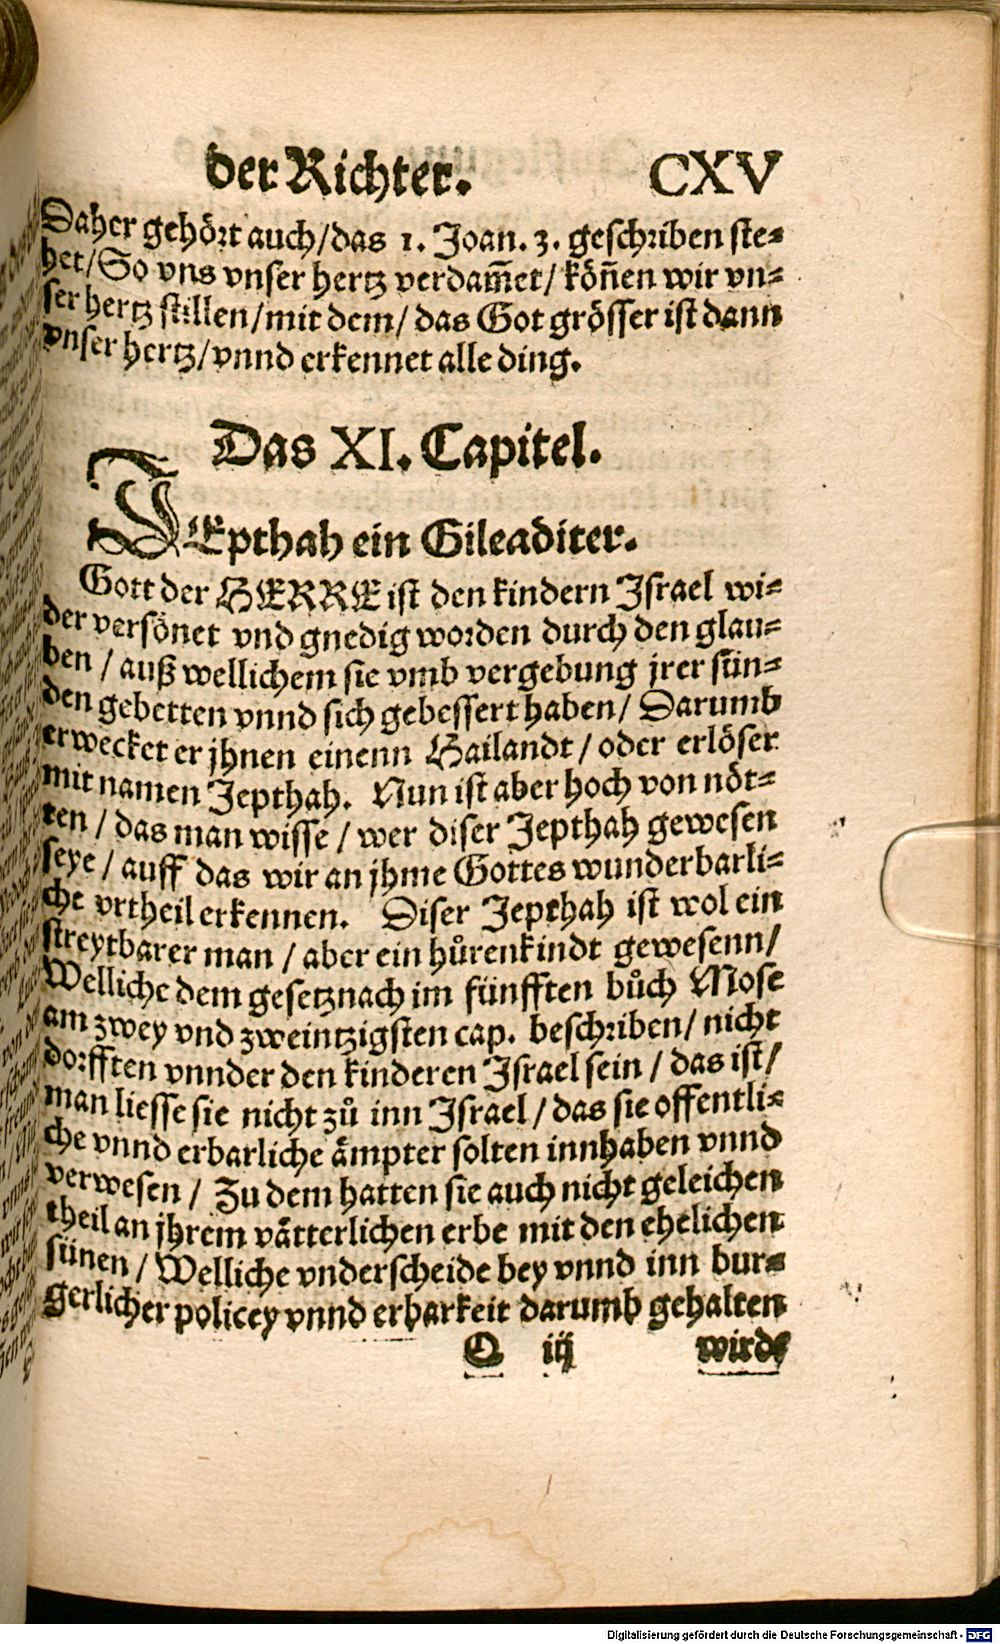 der Richter. CXV
Daher gehört auch/das 1. Joan. 3. geschriben ste-
het/So vns vnser hertz verdam̄et/ kön̄en wir vn-
ser hertz stillen/mit dem/ das Got grösser ist dann
vnser hertz/vnnd erkennet alle ding.
Das XI. Capitel.
JEpthah ein Gileaditer.
Gott der HERRE ist den kindern Israel wi-
der versönet vnd gnedig worden durch den glau-
ben / auß wellichem sie vmb vergebung jrer sün-
den gebetten vnnd sich gebessert haben/ Darumb
erwecket er jhnen einenn Hailandt / oder erlöser
mit namen Jepthah. Nun ist aber hoch von nöt-
ten / das man wisse / wer diser Jepthah gewesen
seye / auff das wir an jhme Gottes wunderbarli-
che vrtheil erkennen. Diser Jepthah ist wol ein
streytbarer man / aber ein hůrenkindt gewesenn/
Welliche dem gesetz nach im fünfften bůch Mose
am zwey vnd zweintzigsten cap. beschriben/ nicht
dorfften vnnder den kinderen Israel sein / das ist/
man liesse sie nicht zů inn Israel / das sie offentli-
che vnnd erbarliche aͤmpter solten innhaben vnnd
verwesen / Zu dem hatten sie auch nicht geleichen
theil an jhrem vaͤtterlichen erbe mit den ehelichen
sünen / Welliche vnderscheide bey vnnd inn bur-
gerlicher policey vnnd erbarkeit darumb gehalten
O iij wirdt
Digitalisierung gefördert durch die Deutsche Forschungsgemeinschaft - DFG